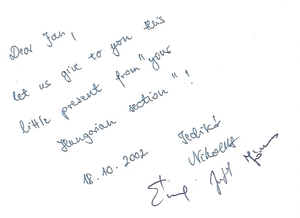 Dear Jan,
let us give to you this
little present from "your
Hungarian section"!
18.10.2002
Ildikó
Nikolett